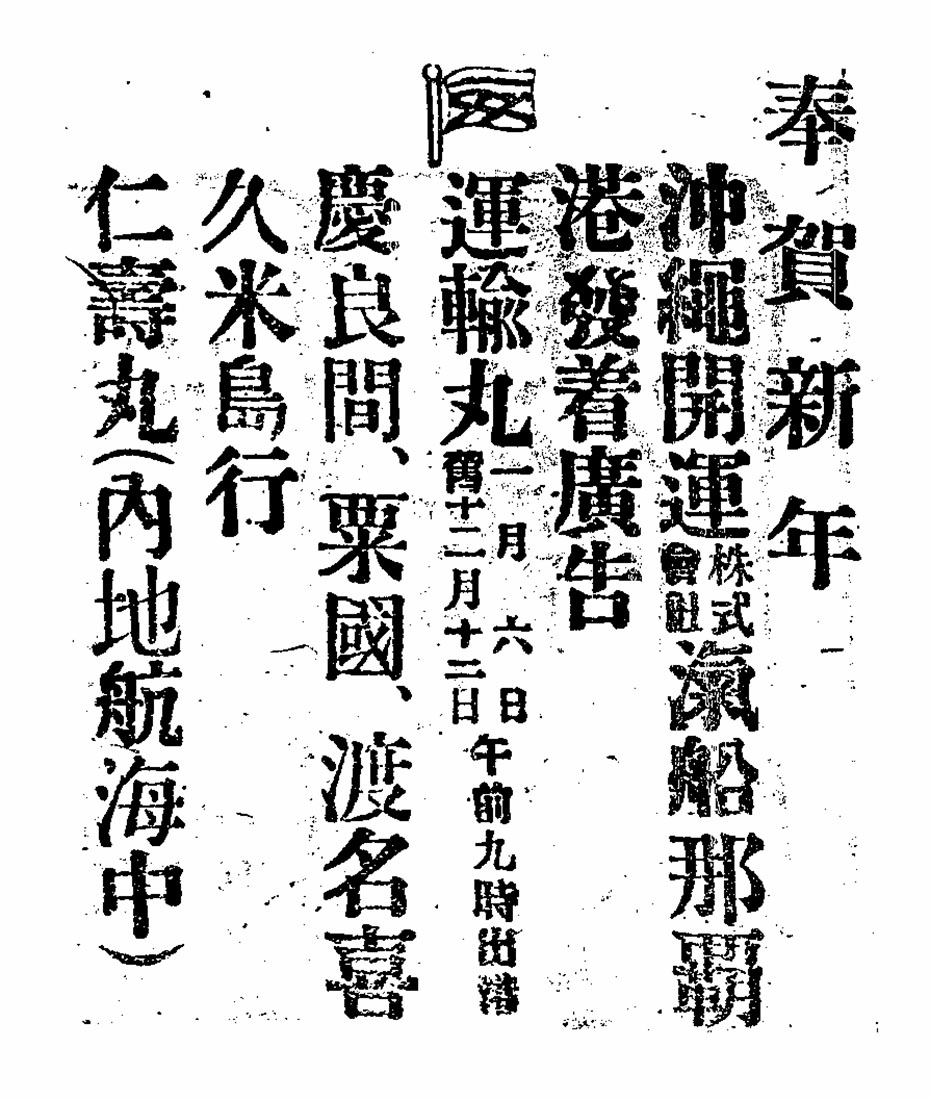 奉賀新年
沖繩開運株式會社滊船那覇
港發着廣告
運輸丸一月六日舊十二月十二日午前九時出港
慶良間、粟國、渡名喜
久米島行
仁壽丸(內地航海中)